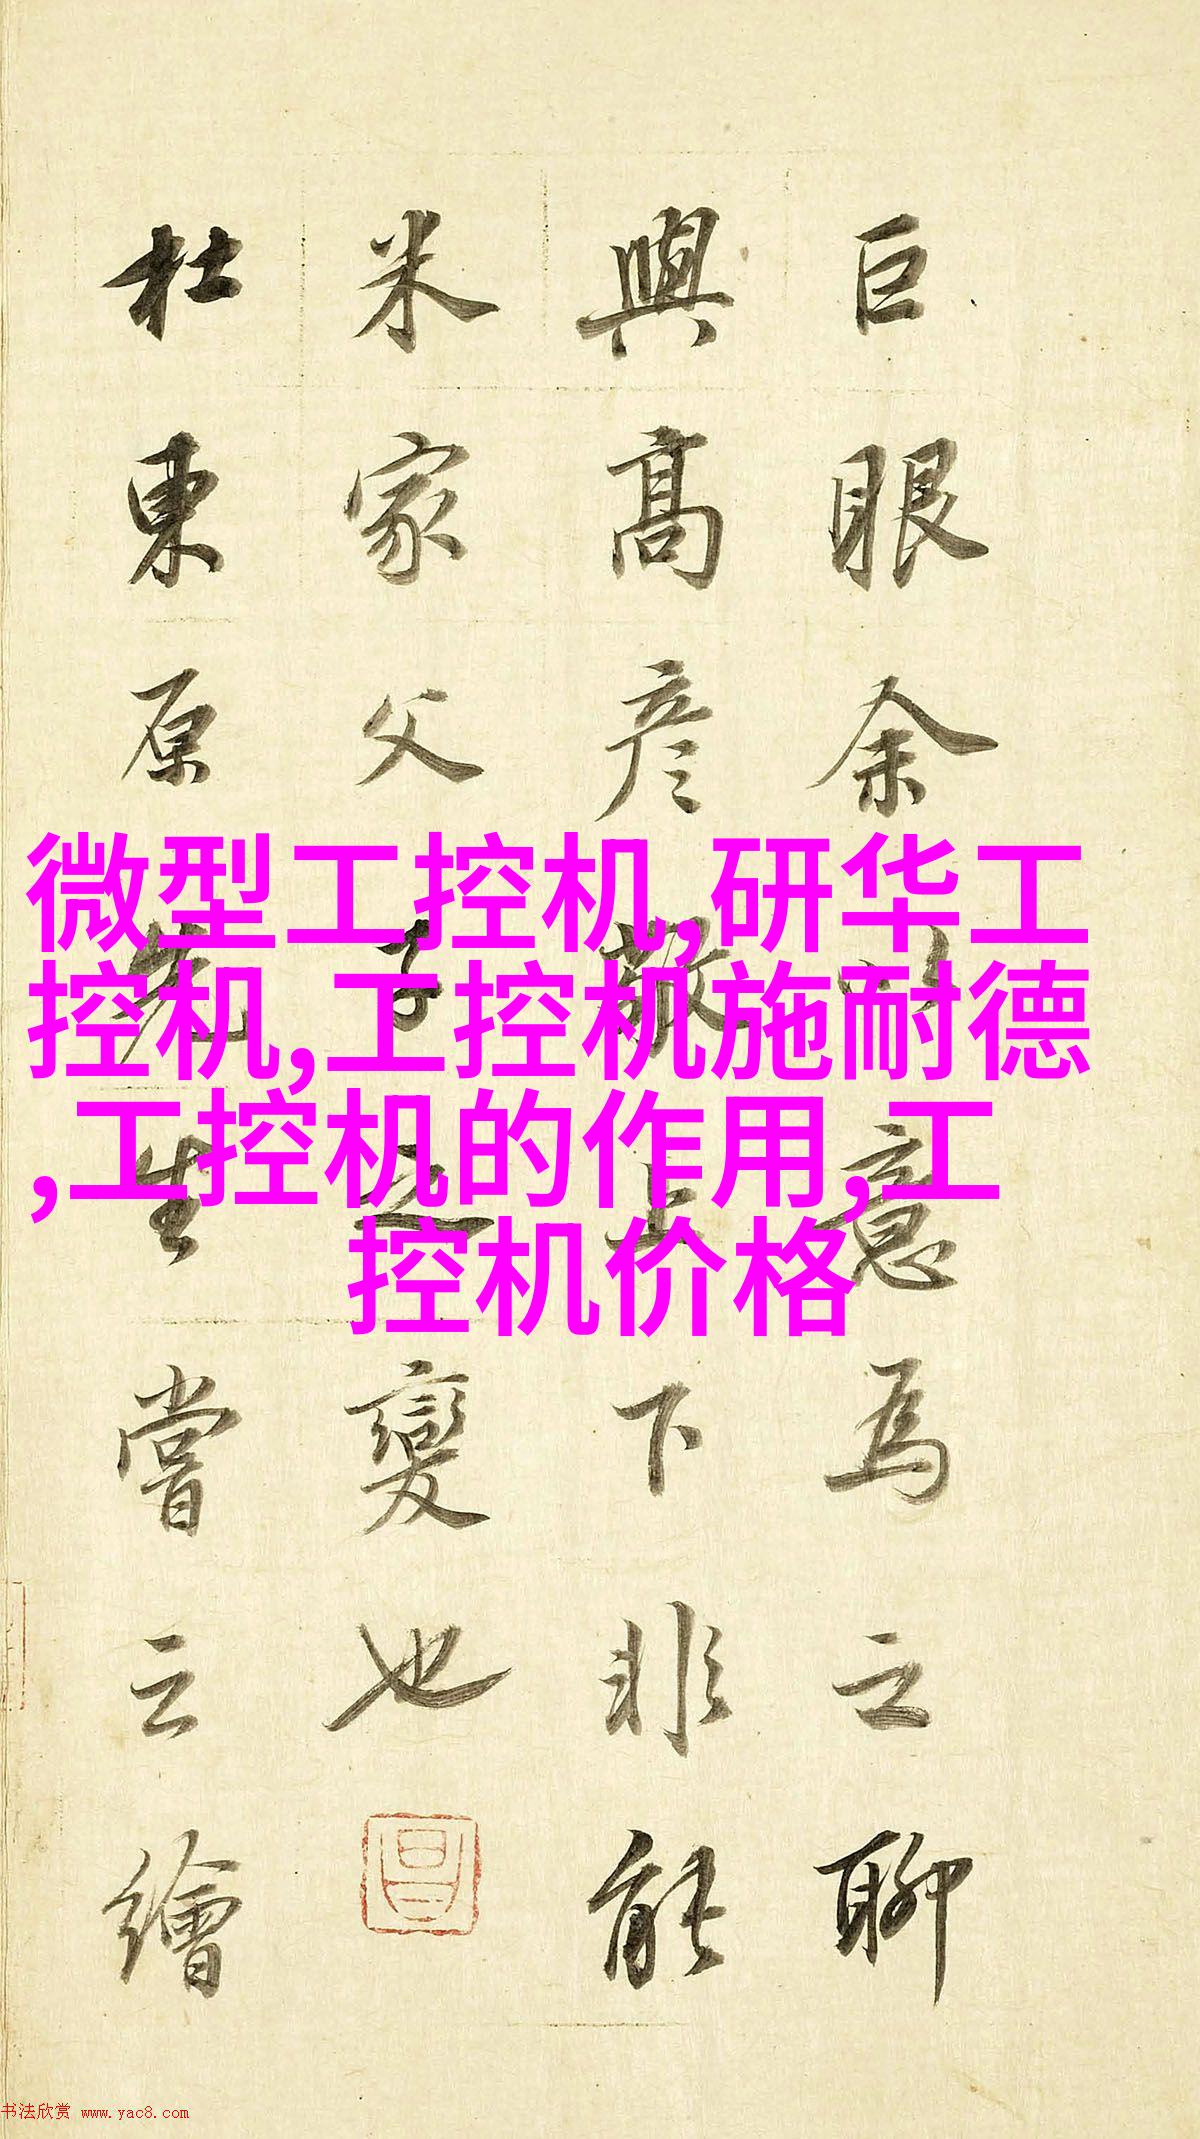 巨眼余意為之聊
與髙彦敬上下非能
米家父子之變也
杜東原先生嘗云繪
微型工控机,研华工
控机,工控机施耐德
,工控机的作用,工
控机价格
书法欣赏 www.yac8.com